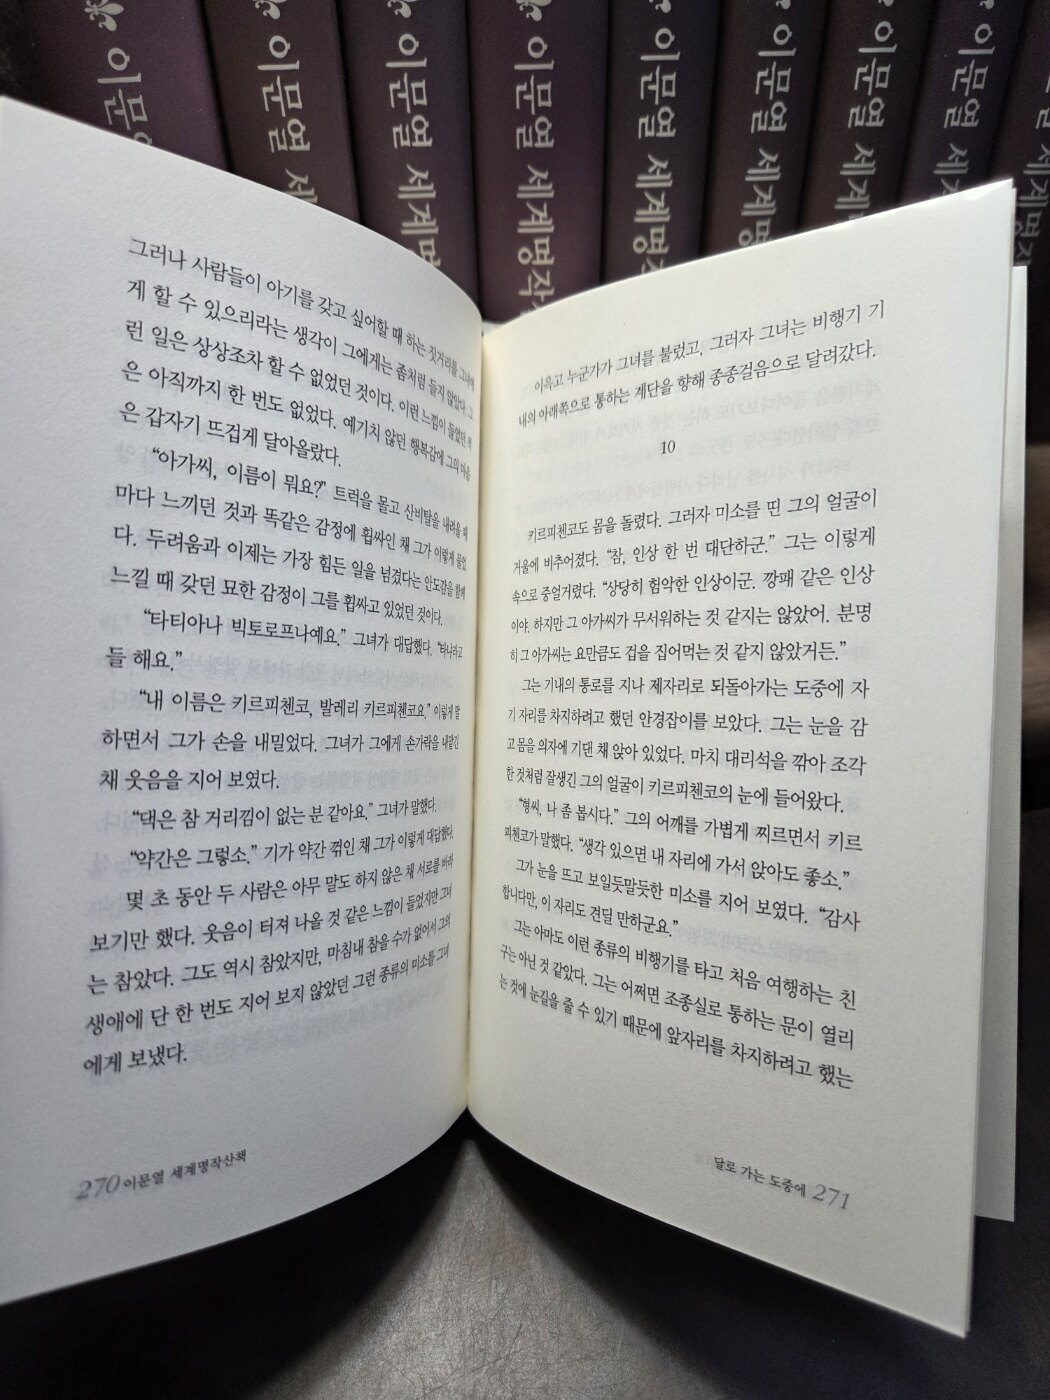 이문열
이문열 세
이문열 세계명
이문열 세계명작
이문열 세계명작
이문열 세계
이문열 세계명
이문열 세
이문열
그러나 사람들이 아기를 갖고 싶어할 때 하는 짓거리를 그녀에
게 할 수 있으리라는 생각이 그에게는 좀처럼 들지 않았다. 그
런 일은 상상조차 할 수 없었던 것이다. 이런 느낌이 들었던 적
은 아직까지 한 번도 없었다. 예기치 않던 행복감에 그의 마음
은 갑자기 뜨겁게 달아올랐다.
“아가씨, 이름이 뭐요?” 트럭을 몰고 산비탈을 내려올 때
마다 느끼던 것과 똑같은 감정에 휩싸인 채 그가 이렇게 물었
다. 두려움과 이제는 가장 힘든 일을 넘겼다는 안도감을 함께
느낄 때 갖던 묘한 감정이 그를 휩싸고 있었던 것이다.
“타티아나 빅토로프나예요.” 그녀가 대답했다. “타냐라고
들 해요.”
“내 이름은 키르피첸코, 발레리 키르피첸코요.” 이렇게 말
하면서 그가 손을 내밀었다. 그녀가 그에게 손가락을 내맡긴
채 웃음을 지어 보였다.
“댁은 참 거리낌이 없는 분 같아요.” 그녀가 말했다.
“약간은 그렇소.” 기가 약간 꺾인 채 그가 이렇게 대답했다.
몇 초 동안 두 사람은 아무 말도 하지 않은 채 서로를 바라
보기만 했다. 웃음이 터져 나올 것 같은 느낌이 들었지만 그녀
는 참았다. 그도 역시 참았지만, 마침내 참을 수가 없어서 그의
생애에 단 한 번도 지어 보지 않았던 그런 종류의 미소를 그녀
에게 보냈다.
270 이문열 세계명작산책
이윽고 누군가가 그녀를 불렀고, 그러자 그녀는 비행기 기
내의 아래쪽으로 통하는 계단을 향해 종종걸음으로 달려갔다.
10
키르피첸코도 몸을 돌렸다. 그러자 미소를 띤 그의 얼굴이
거울에 비추어졌다. “참, 인상 한 번 대단하군.” 그는 이렇게
속으로 중얼거렸다. “상당히 험악한 인상이군. 깡패 같은 인상
이야. 하지만 그 아가씨가 무서워하는 것 같지는 않았어. 분명
히 그 아가씨는 요만큼도 겁을 집어먹는 것 같지 않았거든.”
그는 기내의 통로를 지나 제자리로 되돌아가는 도중에 자
기 자리를 차지하려고 했던 안경잡이를 보았다. 그는 눈을 감
고 몸을 의자에 기댄 채 앉아 있었다. 마치 대리석을 깎아 조각
한 것처럼 잘생긴 그의 얼굴이 키르피첸코의 눈에 들어왔다.
“형씨, 나 좀 봅시다.” 그의 어깨를 가볍게 찌르면서 키르
피첸코가 말했다. “생각 있으면 내 자리에 가서 앉아도 좋소.”
그가 눈을 뜨고 보일듯말듯한 미소를 지어 보였다. “감사
합니다만, 이 자리도 견딜 만하군요.”
그는 아마도 이런 종류의 비행기를 타고 처음 여행하는 친
구는 아닌 것 같았다. 그는 어쩌면 조종실로 통하는 문이 열리
는 것에 눈길을 줄 수 있기 때문에 앞자리를 차지하려고 했는
달로 가는 도중에 271